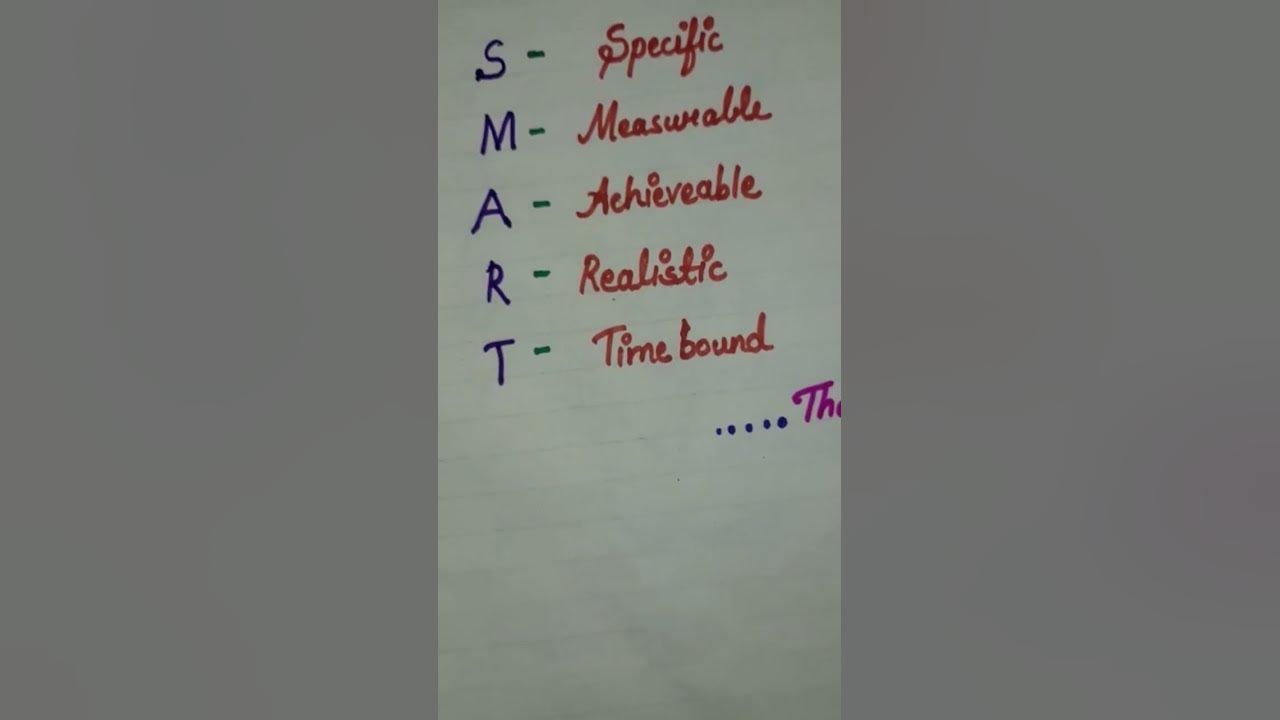 S - Specific
M - Measurable
A - Achieveable
R - Realistic
T - Time bound
.....